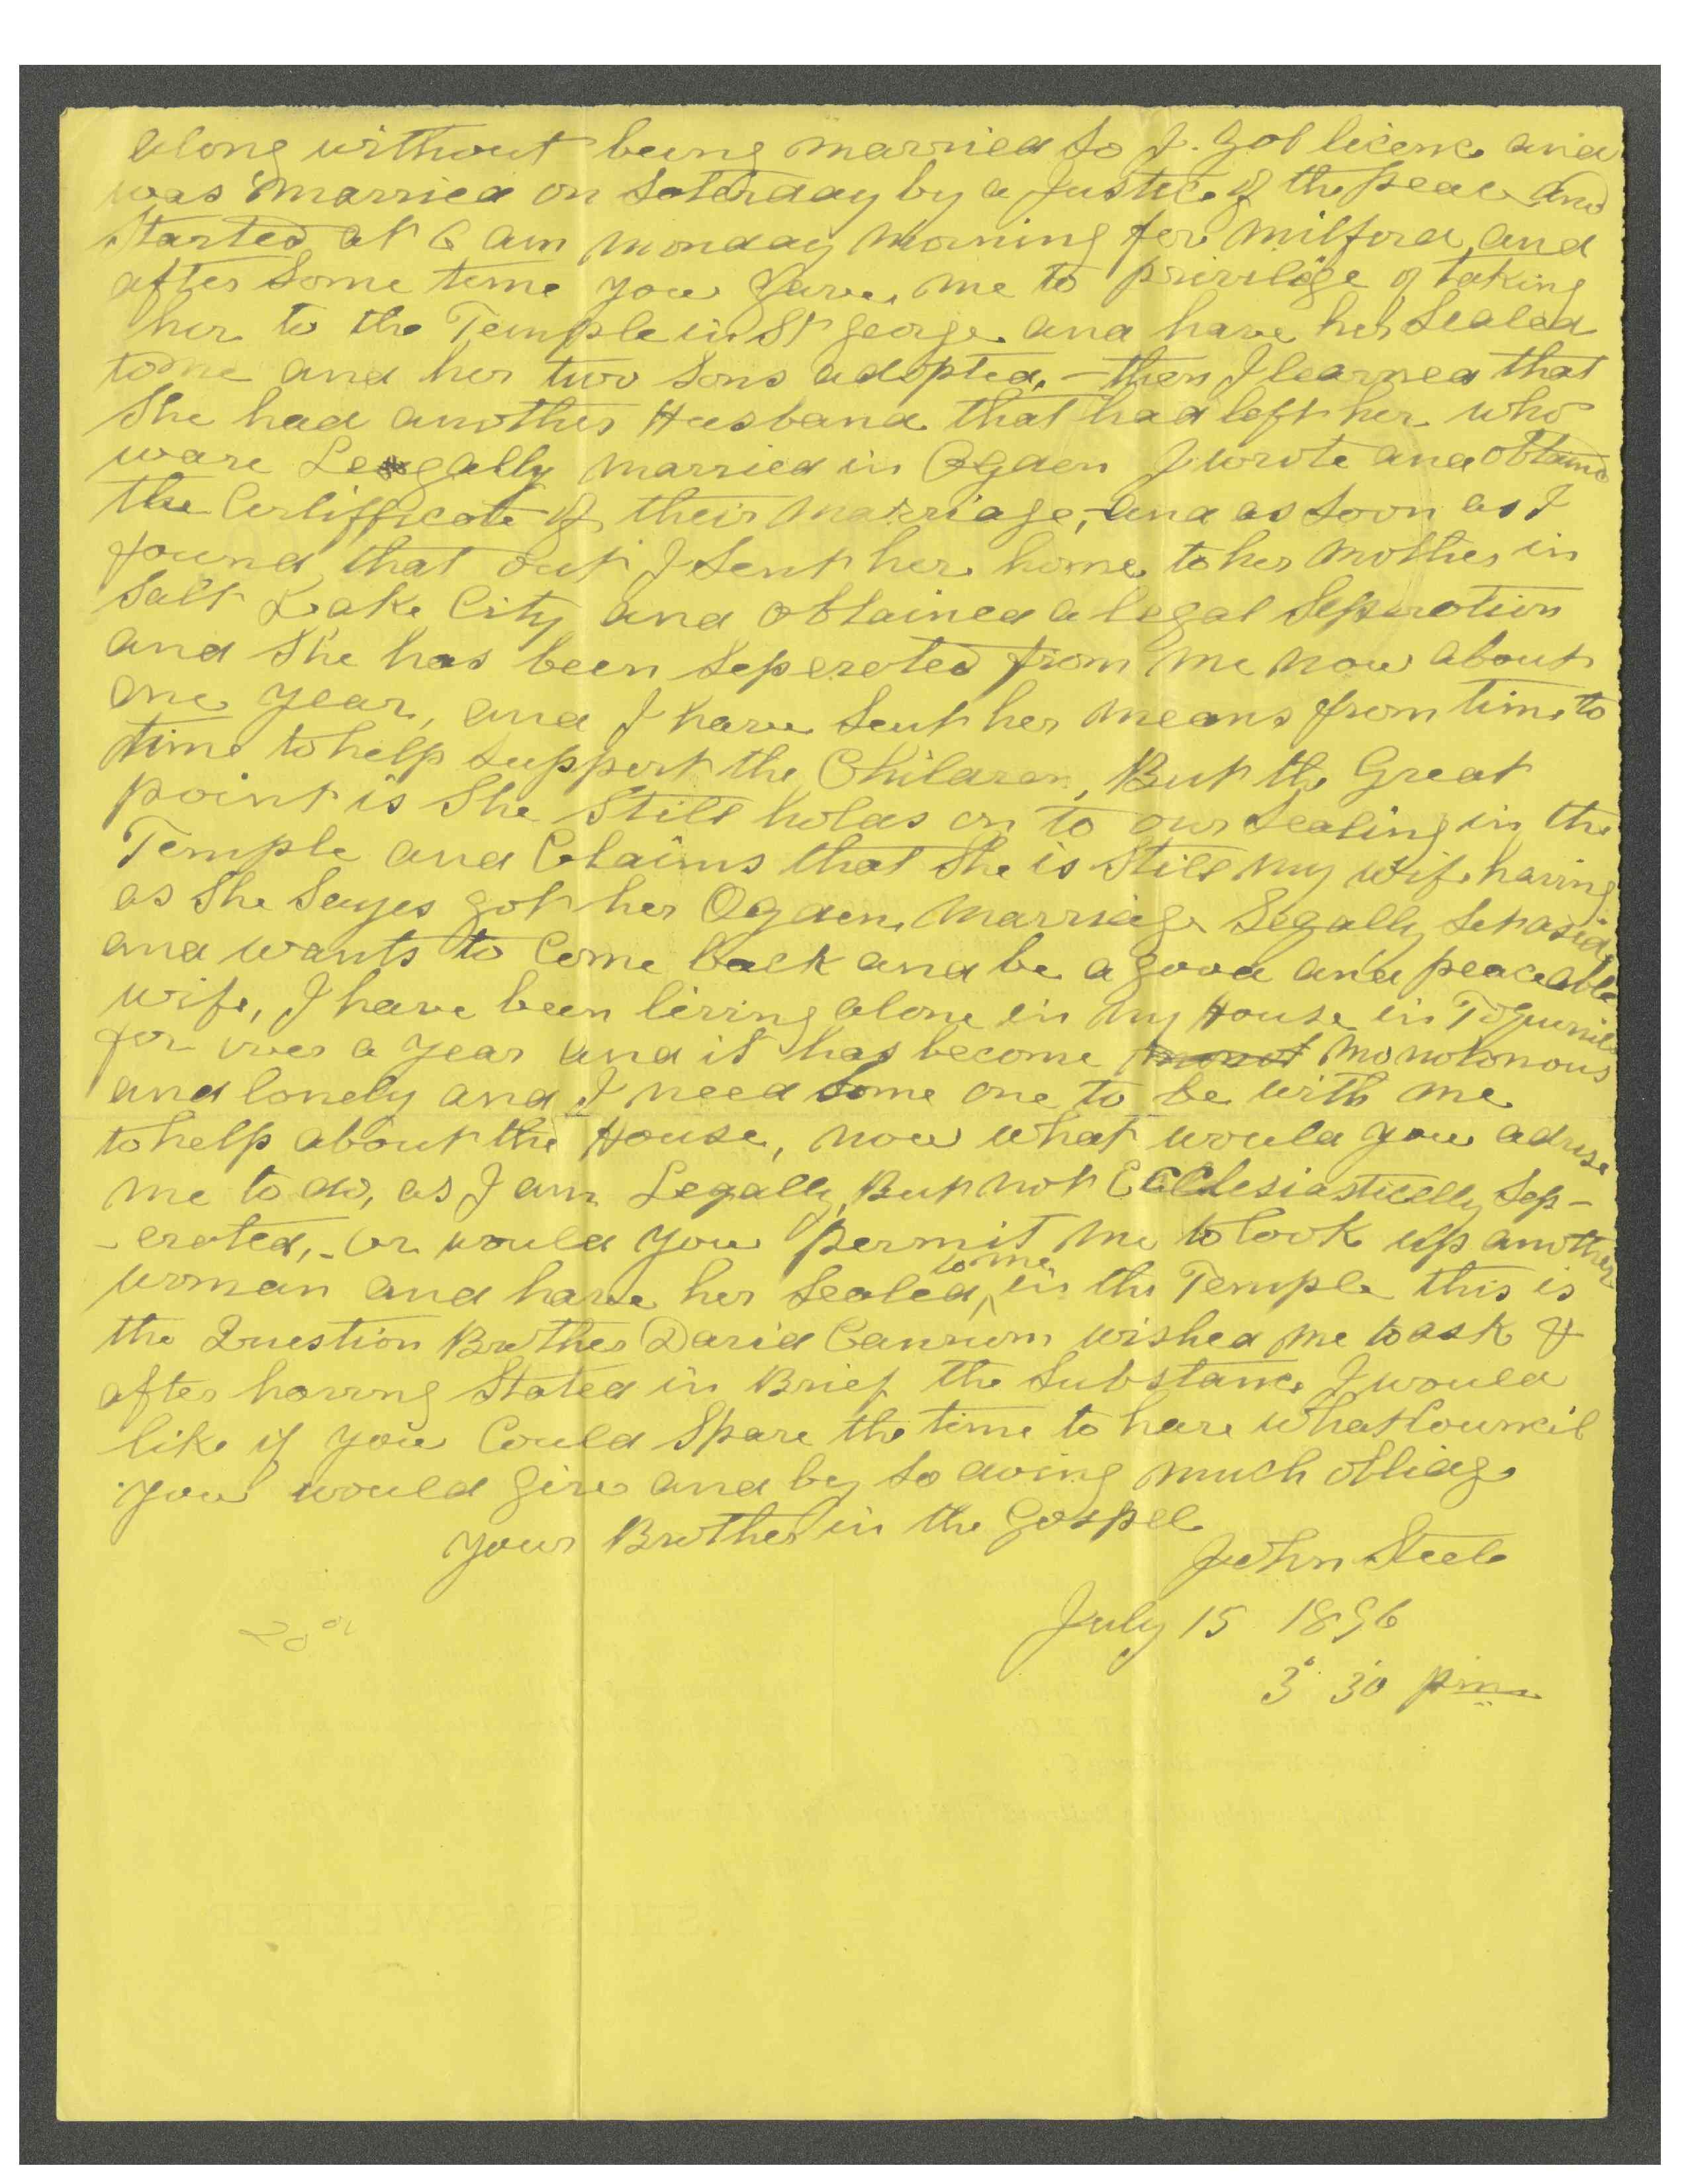 along without being married so I. got licence and
was married on Saterday by a Justice of the peace and
started at 6 am monday morning for milford, and
after some time you gave me to privilige of taking
her to the Temple in St george and have her Sealed
to me and her two Sons adopted, - then I learned that
She had another Husband that had left her who
ware Legally married in Ogden I wrote and obtained
the Certifficate of their marriage, - and as soon as I
found that out I Sent her home to her mother in
Salt Lake City and obtained a legal Seperation
and She has been Seperated from me now about
one year, and I have Sent her means from time to
time to help support the Children, But the Great
point is She Still holds on to our Sealing in the
Temple and Claims that She is Still my wife having
as She Sayes got her Ogden, marriage Legally Set aside
and wants to Come back and be a good and peaceable
wife, I have been living alone in my House in Toquerville
for over a year and it has become monotonous
and lonely and I need Some one to be with me
to help about the House, now what would you advise
me to do, as I am Legally, But not Ecclesiastically Sep-
-erated, - or would you permit me to look up another
woman and have her Sealed, to me in the Temple this is
the Question Brother David Cannon wished me to ask &
after having Stated in Brief the Substance I would
like if you Could Spare the time to have what Council
you would give and by so doing much obliage
your Brother in the Gospel
John Steele
July 15 1896
3 30 pm